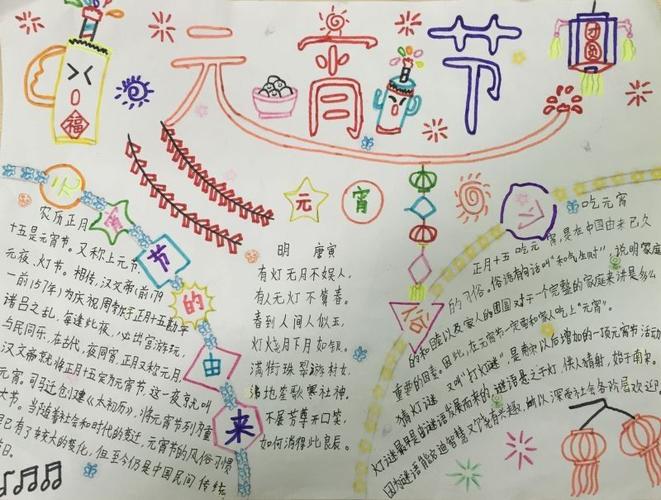 元宵节
团圆
福
元宵节的由来
农历正月
十五是元宵节。又称上元节、
元夜、灯节。相传,汉文帝(前179
一前157年)为庆祝周勃于正月十五勘平
诸吕之乱,每逢此夜,必出宫游玩,
与民同乐,在古代,夜同宵,正月又称元月,
汉文帝就将正月十五定为元宵节,这一夜就叫
元宵。司马迁创建《太初历》,将元宵节列为重
大节。当随着社会和时代的变迁,元宵节的风俗习惯
已有了较大的变化,但至今仍是中国民间传统
节日。
元宵
明 唐寅
有灯无月不娱人,
有月无灯不算春。
春到人间人似玉,
灯烧月下月如银。
满街珠翠游村女,
沸地笙歌赛社神。
不展芳尊开口笑,
如何消得此良辰。
吃元宵
正月十五吃元宵,是在中国由来已久
的习俗。俗话有句话叫"和气生财",说明家庭
的和睦以及家人的团圆对于一个完整的家庭来讲是多么
重要的因素。因此,在元宵节一定要和家人吃上"元宵"。
猜灯谜 又叫"打灯谜"是
以后增加的一项元宵节活动
灯谜最早是由谜语发展而来的
谜语悬之于灯,供人猜射,始于南宋。
因为谜语能启迪智慧又饶有兴趣,所以深受社会各阶层欢迎